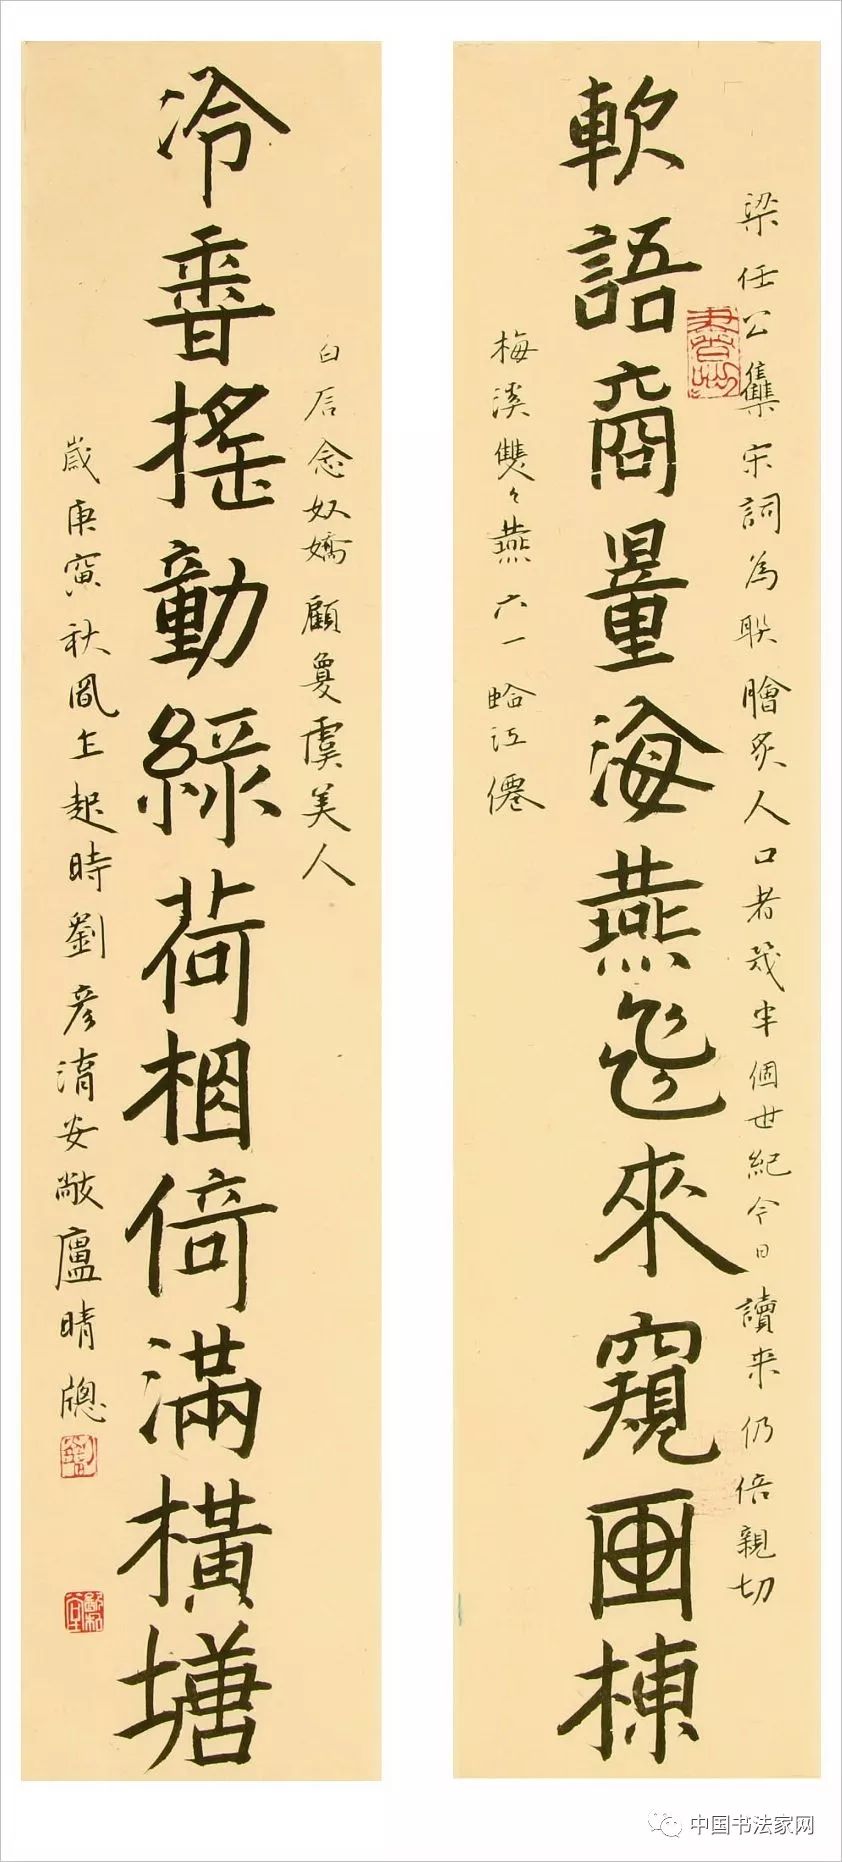 梁任公雧宋詞為聯膾炙人口者幾半個世紀今日讀来仍倍親切
軟語商量海燕飛來窺画棟
梅溪雙々燕六一臨江僊
白石念奴嬌顧夐虞美人
冷香搖動綠荷相倚滿橫塘
歲庚寅秋風乍起時劉彥湖安敞廬晴牕
中国书法家网